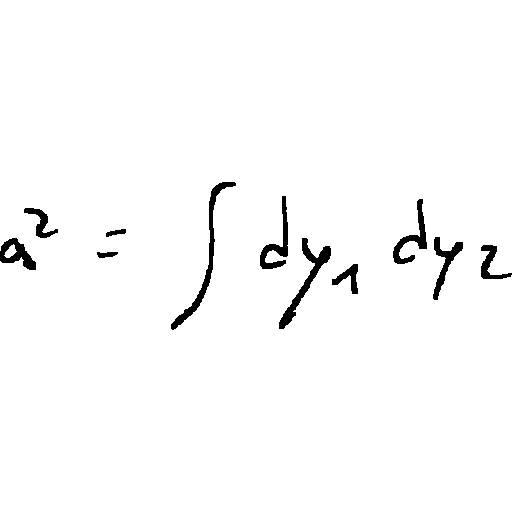 a² = ∫ dy₁ dy₂